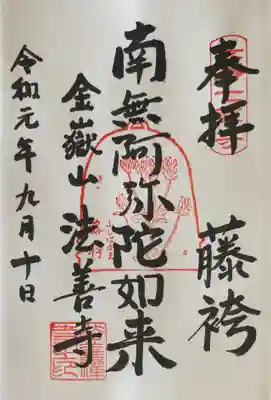 奉拝
藤袴
南無阿弥陀如来
金嶽山 法善寺
令和元年九月十日